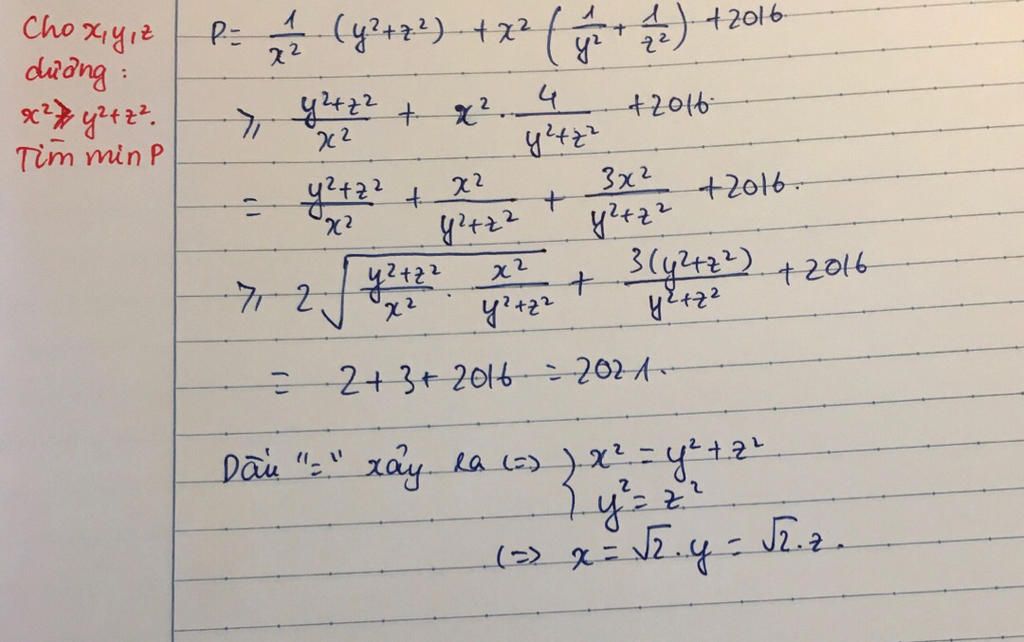 Cho x, y, z
dương :
x² ≥ y²+z².
Tìm min P
P = 1/x² (y²+z²) + x² (1/y² + 1/z²) + 2016
≥ (y²+z²)/x² + x² · 4/(y²+z²) + 2016
= (y²+z²)/x² + x²/(y²+z²) + 3x²/(y²+z²) + 2016.
≥ 2√((y²+z²)/x² · x²/(y²+z²)) + 3(y²+z²)/(y²+z²) + 2016
= 2 + 3 + 2016 = 2021.
Dấu "=" xảy ra (=> } x² = y² + z²
y² = z²
(=> x = √2.y = √2.z.